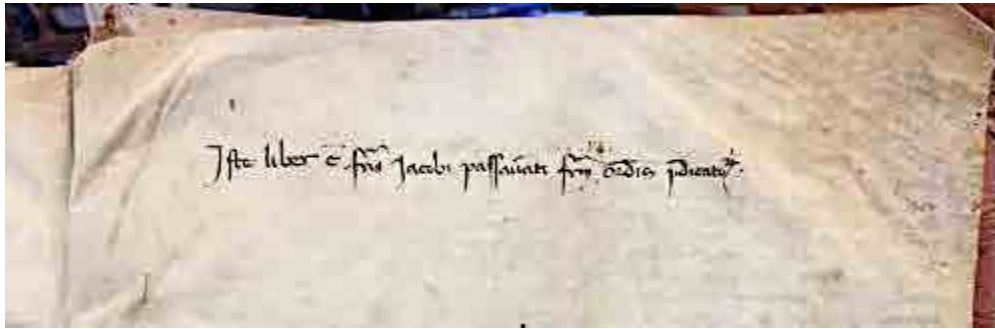 Iste liber ē fr̄is Jacobi passauāti fr̄m ordīs p̄dicatoꝝ.